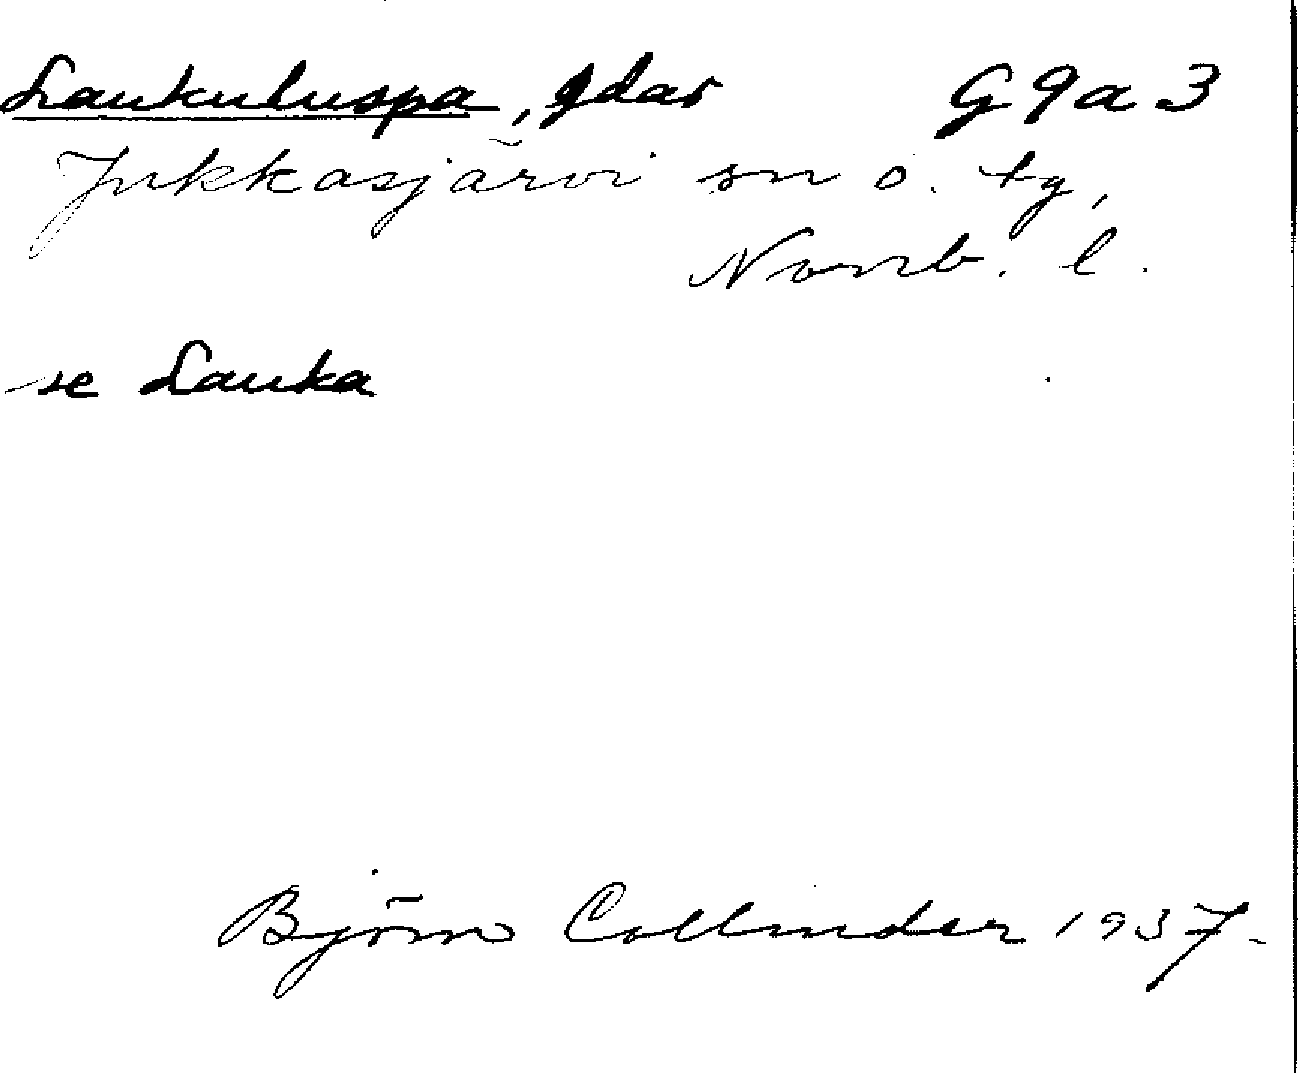 Laukuluspa, gdar G9a3
Jukkasjärvi sn o. tg,
Norrb. l.
se Lauka
Björn Collinder 1937.